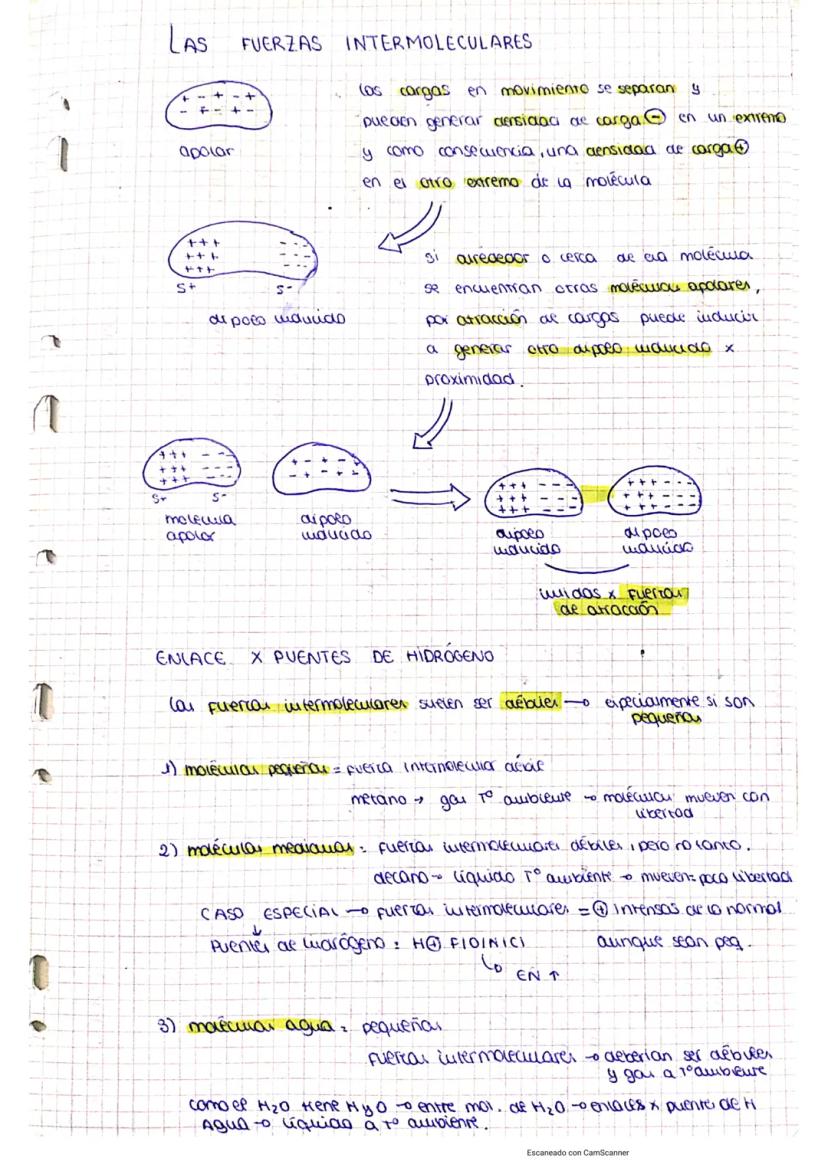 LAS FUERZAS INTERMOLECULARES
+ - + - +
- + - + -
apolar
las cargas en movimiento se separan y
pueden generar densidad de carga ⊖ en un extremo
y como consecuencia, una densidad de carga ⊕
en el otro extremo de la molécula
+++ ---
+++ ---
+++ ---
S+ S-
dipolo inducido
si alrededor o cerca de esa molécula
se encuentran otras moléculas apolares,
por atracción de cargas puede inducir
a generar otro dipolo inducido x
proximidad.
+++ ---
+++ ---
+++ ---
S+ S-
molécula
apolar
+ - + -
- + - +
dipolo
inducido
+++ ---
+++ ---
+++ ---
dipolo
inducido
+++ ---
+++ ---
+++ ---
dipolo
inducido
unidos x fuerzas
de atracción
ENLACE X PUENTES DE HIDRÓGENO
las fuerzas intermoleculares suelen ser débiles → especialmente si son
pequeñas
1) moléculas pequeñas = fuerza intermolecular débil
metano → gas Tº ambiente → moléculas mueven con
libertad
2) moléculas medianas = fuerzas intermoleculares débiles, pero no tanto.
decano → líquido Tº ambiente → mueven = poca libertad
CASO ESPECIAL → fuerzas intermoleculares = ⊕ intensas de lo normal
Puentes de hidrógeno : H ⊕ F|O|N|Cl aunque sean peq.
EN ↑
3) moléculas agua = pequeñas
fuerzas intermoleculares → deberían ser débiles
y gas a Tº ambiente
como el H2O tiene H y O → entre mol. de H2O → enlaces x puente de H
AGUA → líquida a Tº ambiente.
Escaneado con CamScanner